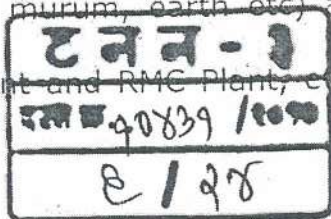 murum, earth etc)
ट न न - ३
nt and RMC Plant, c
दस्त क्र १०४३१ /२०१०
६ / २४